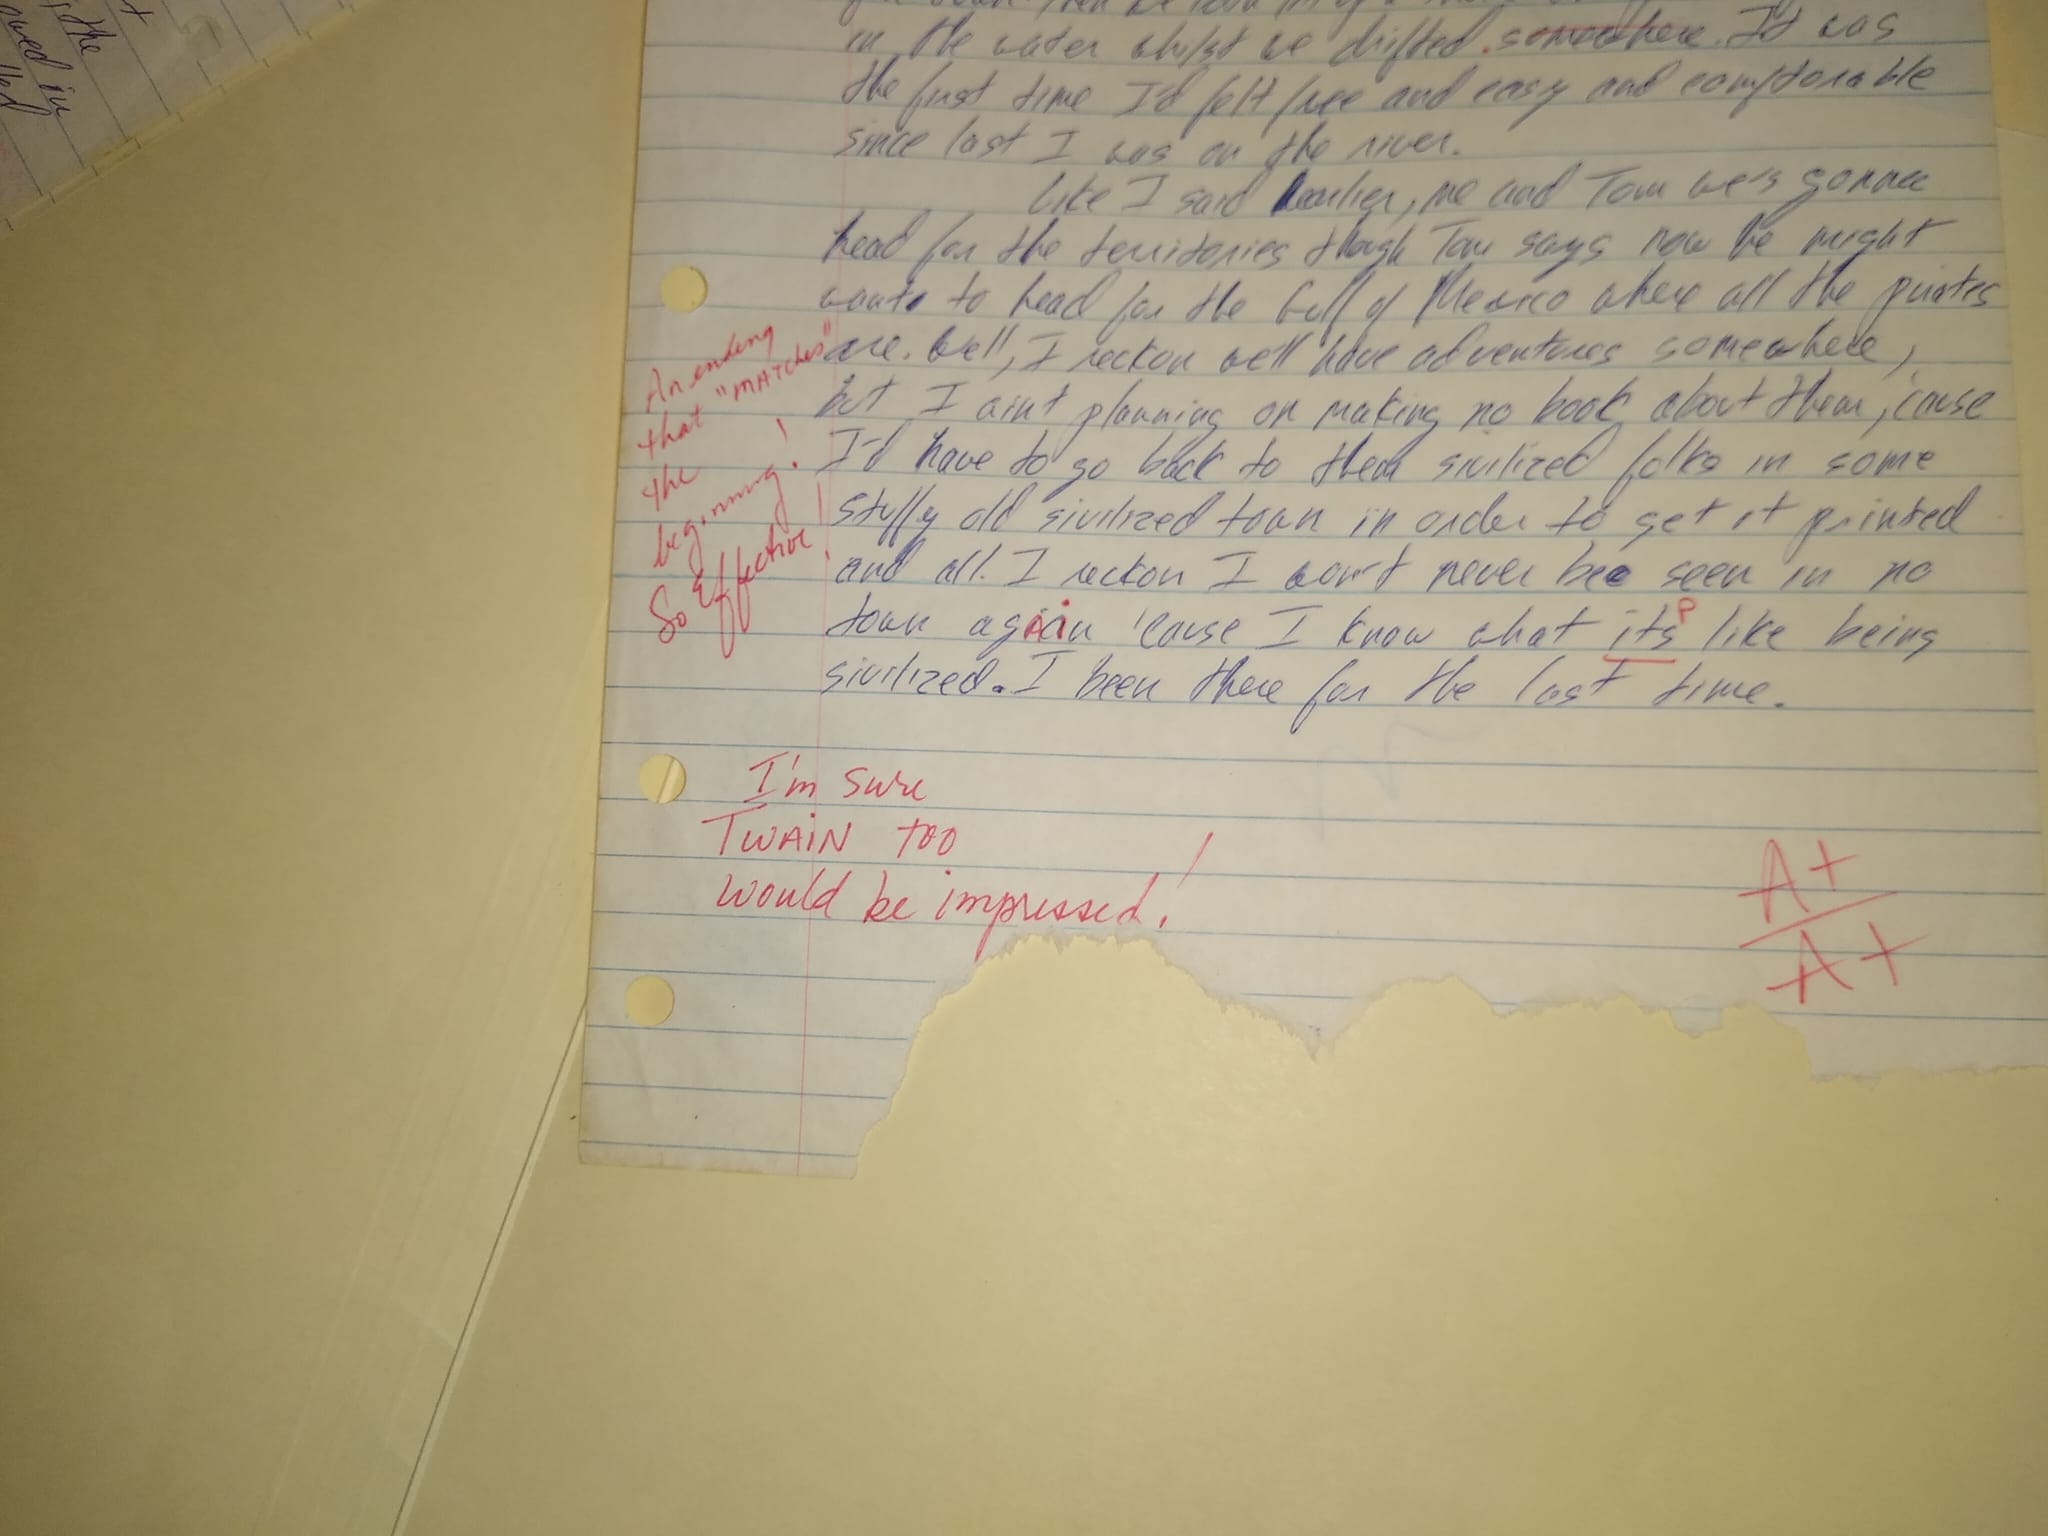 owed in
the
in the water whilst we drifted. somewhere. It was
the first time I'd felt free and easy and comfdorable
since last I was on the river.
Like I said earlier, me and Tom we's gonna
head for the territories though Tom says now he might
want to head for the Gulf of Mexico where all the pirates
are. Well, I reckon we'll have adventures somewhere,
but I aint planning on making no book about them, 'cause
I'd have to go back to them sivilized folks in some
stuffy old sivilized town in order to get it printed
and all. I reckon I won't never be seen in no
town again 'cause I know what its like being
sivilized. I been there for the last time.
An ending
that "MATCHES"
the
beginning!
So Effective!
P
I'm sure
TWAIN TOO
would be impressed!
A+
A+